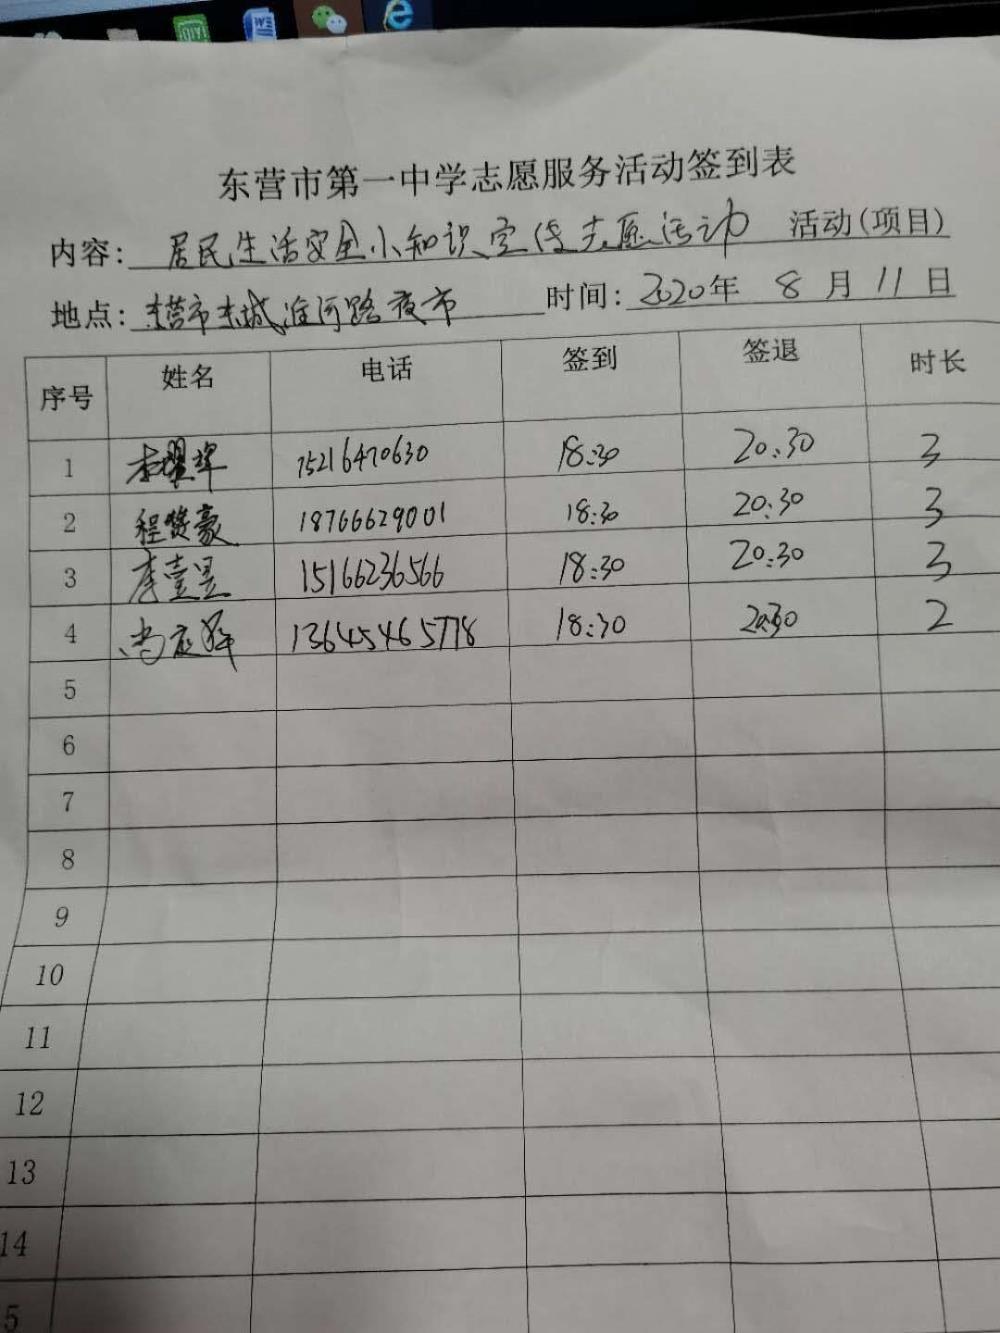 东营市第一中学志愿服务活动签到表
内容: 居民生活安全小知识宣传志愿活动 活动(项目)
地点: 东营市东城淮河路夜市 时间: 2020年 8 月 11 日
序号 姓名 电话 签到 签退 时长
1 李耀辉 15216470630 18:30 20:30 3
2 程贤豪 18766629001 18:30 20:30 3
3 李壹昱 15166236566 18:30 20:30 3
4 尚 13645465778 18:30 20:30 2
5
6
7
8
9
10
11
12
13
14
5